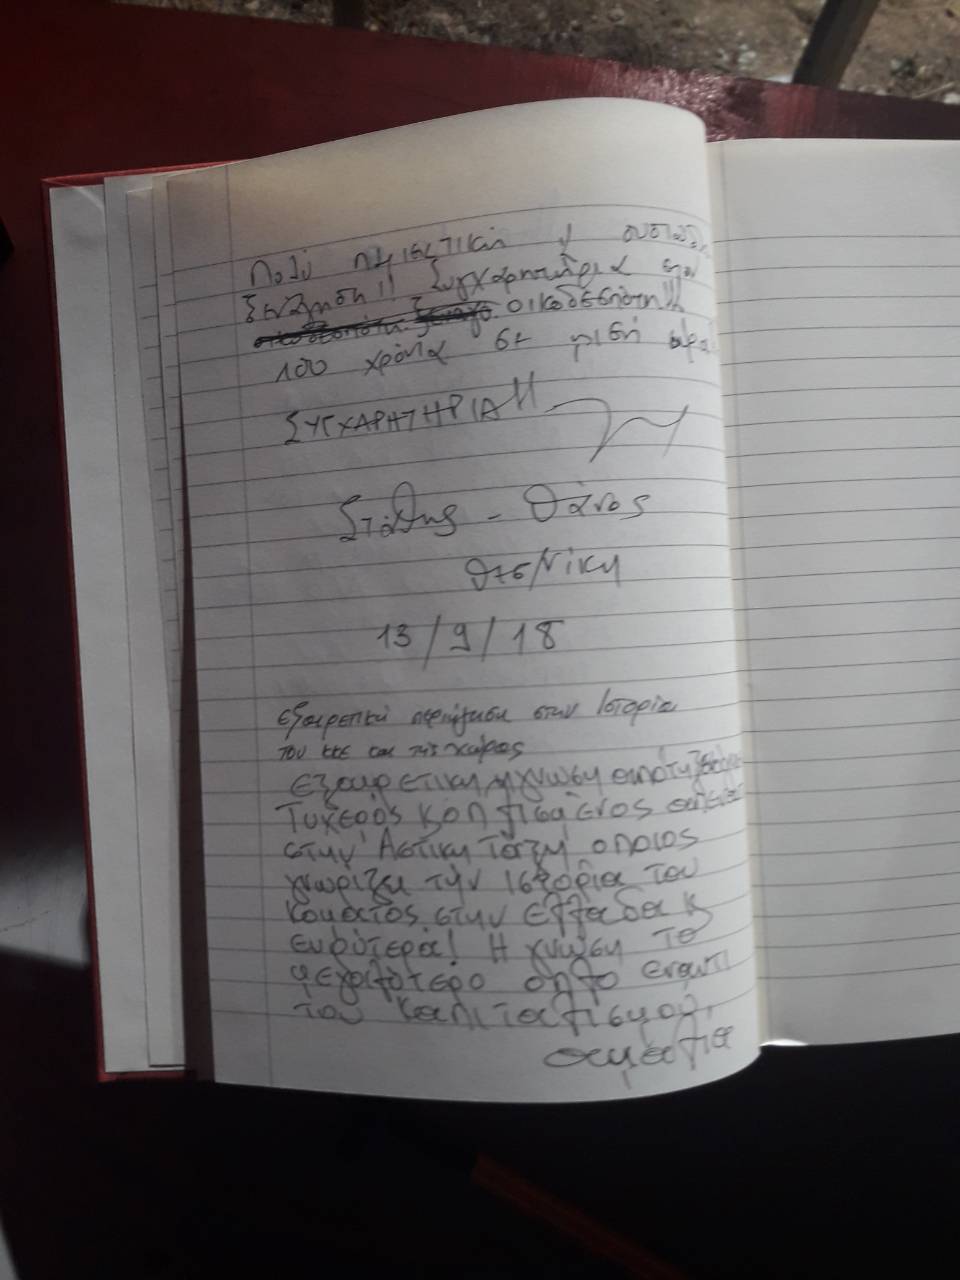 Πολύ περιεκτική η
ξενάγηση!! Συγχαρητήρια στον
οικοδεσπότη!!
100 χρόνια σε μισή ώρα
ΣΥΓΧΑΡΗΤΗΡΙΑ!!
Στάθης - Θάνος
Θεσ/νίκη
13/9/18
εξαιρετική περιήγηση στην Ιστορία
του ΚΚΕ και της χώρας
Εξαιρετική γνώση
Τυχερός
στην Αστική Τάξη όποιος
γνωρίζει την ιστορία του
κόμματος στην Ελλάδα κ
ευρύτερα! Η γνώση το
μεγαλύτερο όπλο έναντι
του καπιταλισμού.